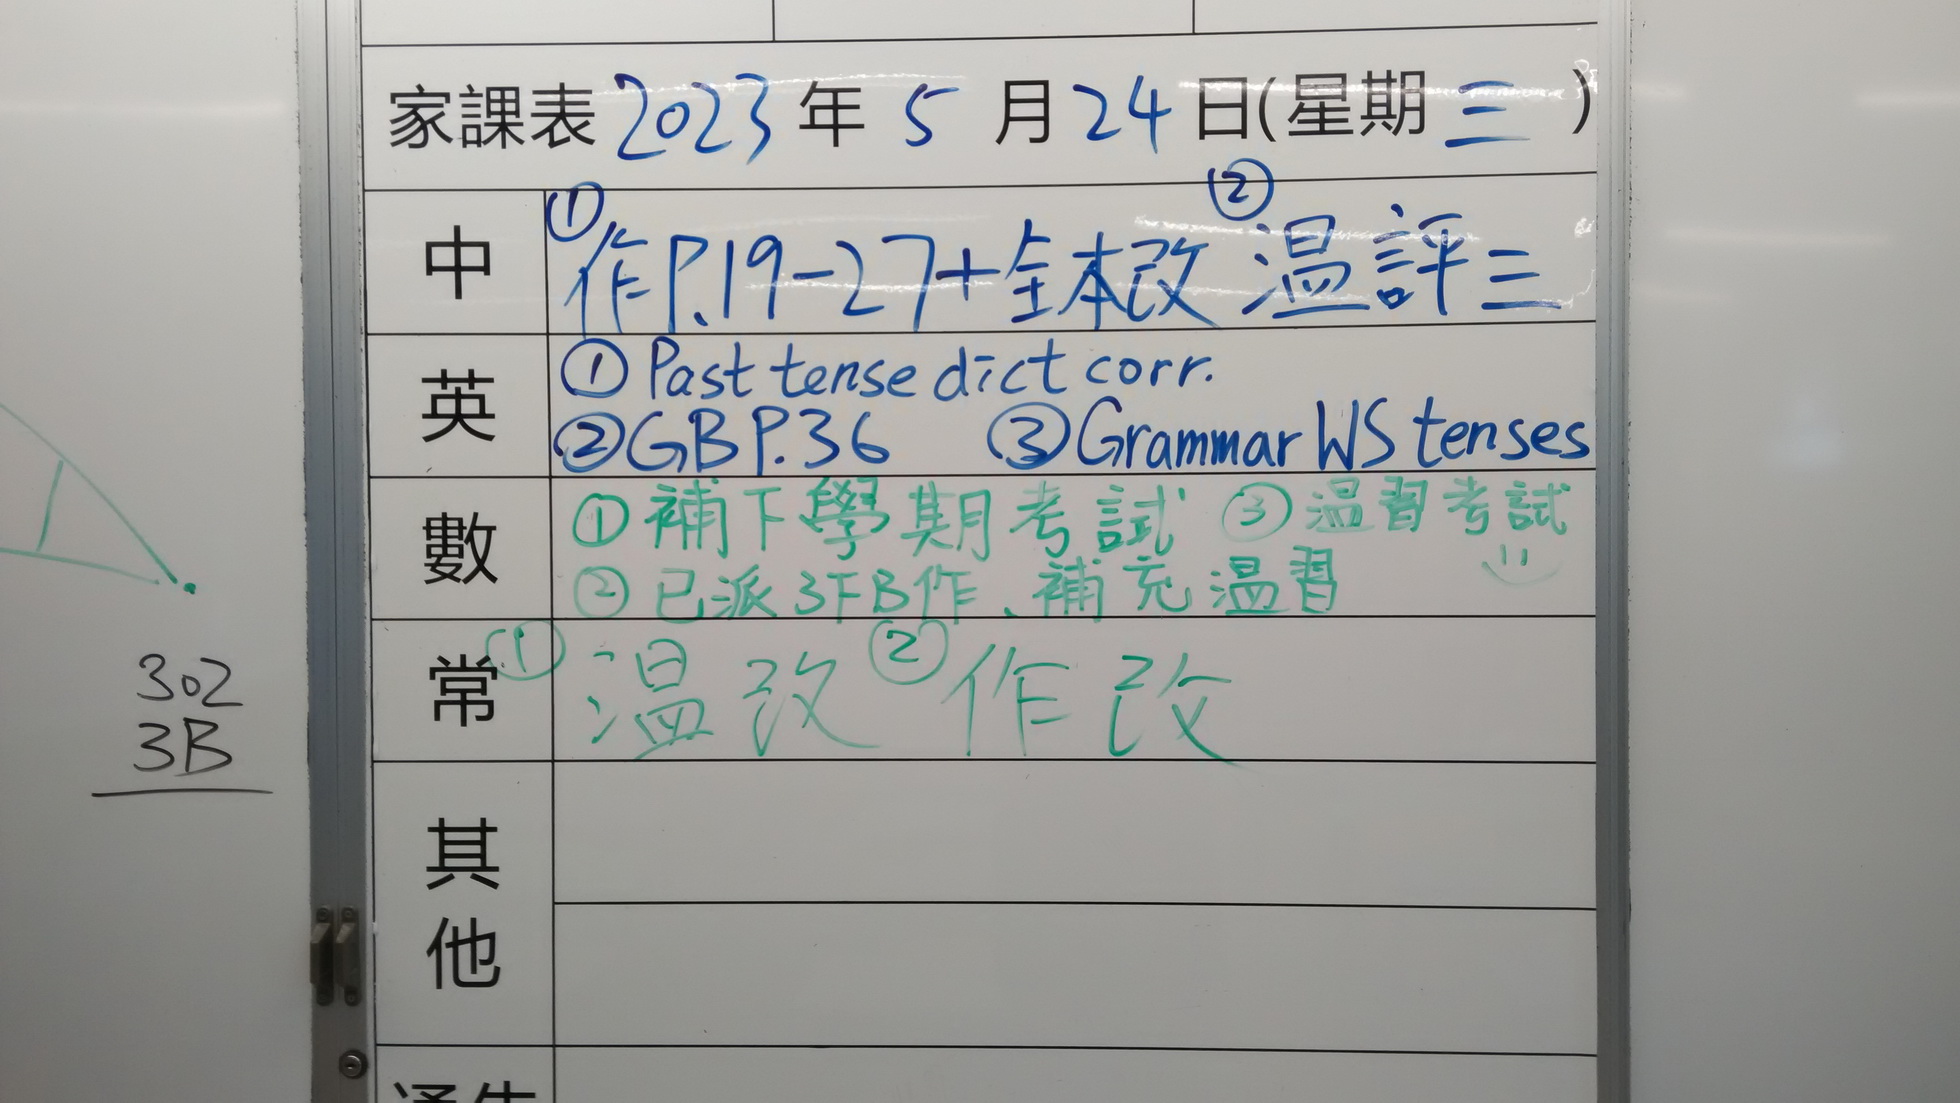 家課表 2023 年 5 月 24 日(星期 三 )
中 ①作P.19-27+全本改 ②温評三
英 ① Past tense dict corr.
②GB P.36 ③Grammar WS tenses
數 ①補下學期考試 ③温習考試
②已派3下B作、補充温習
常 ①温改 ②作改
其他
302
3B